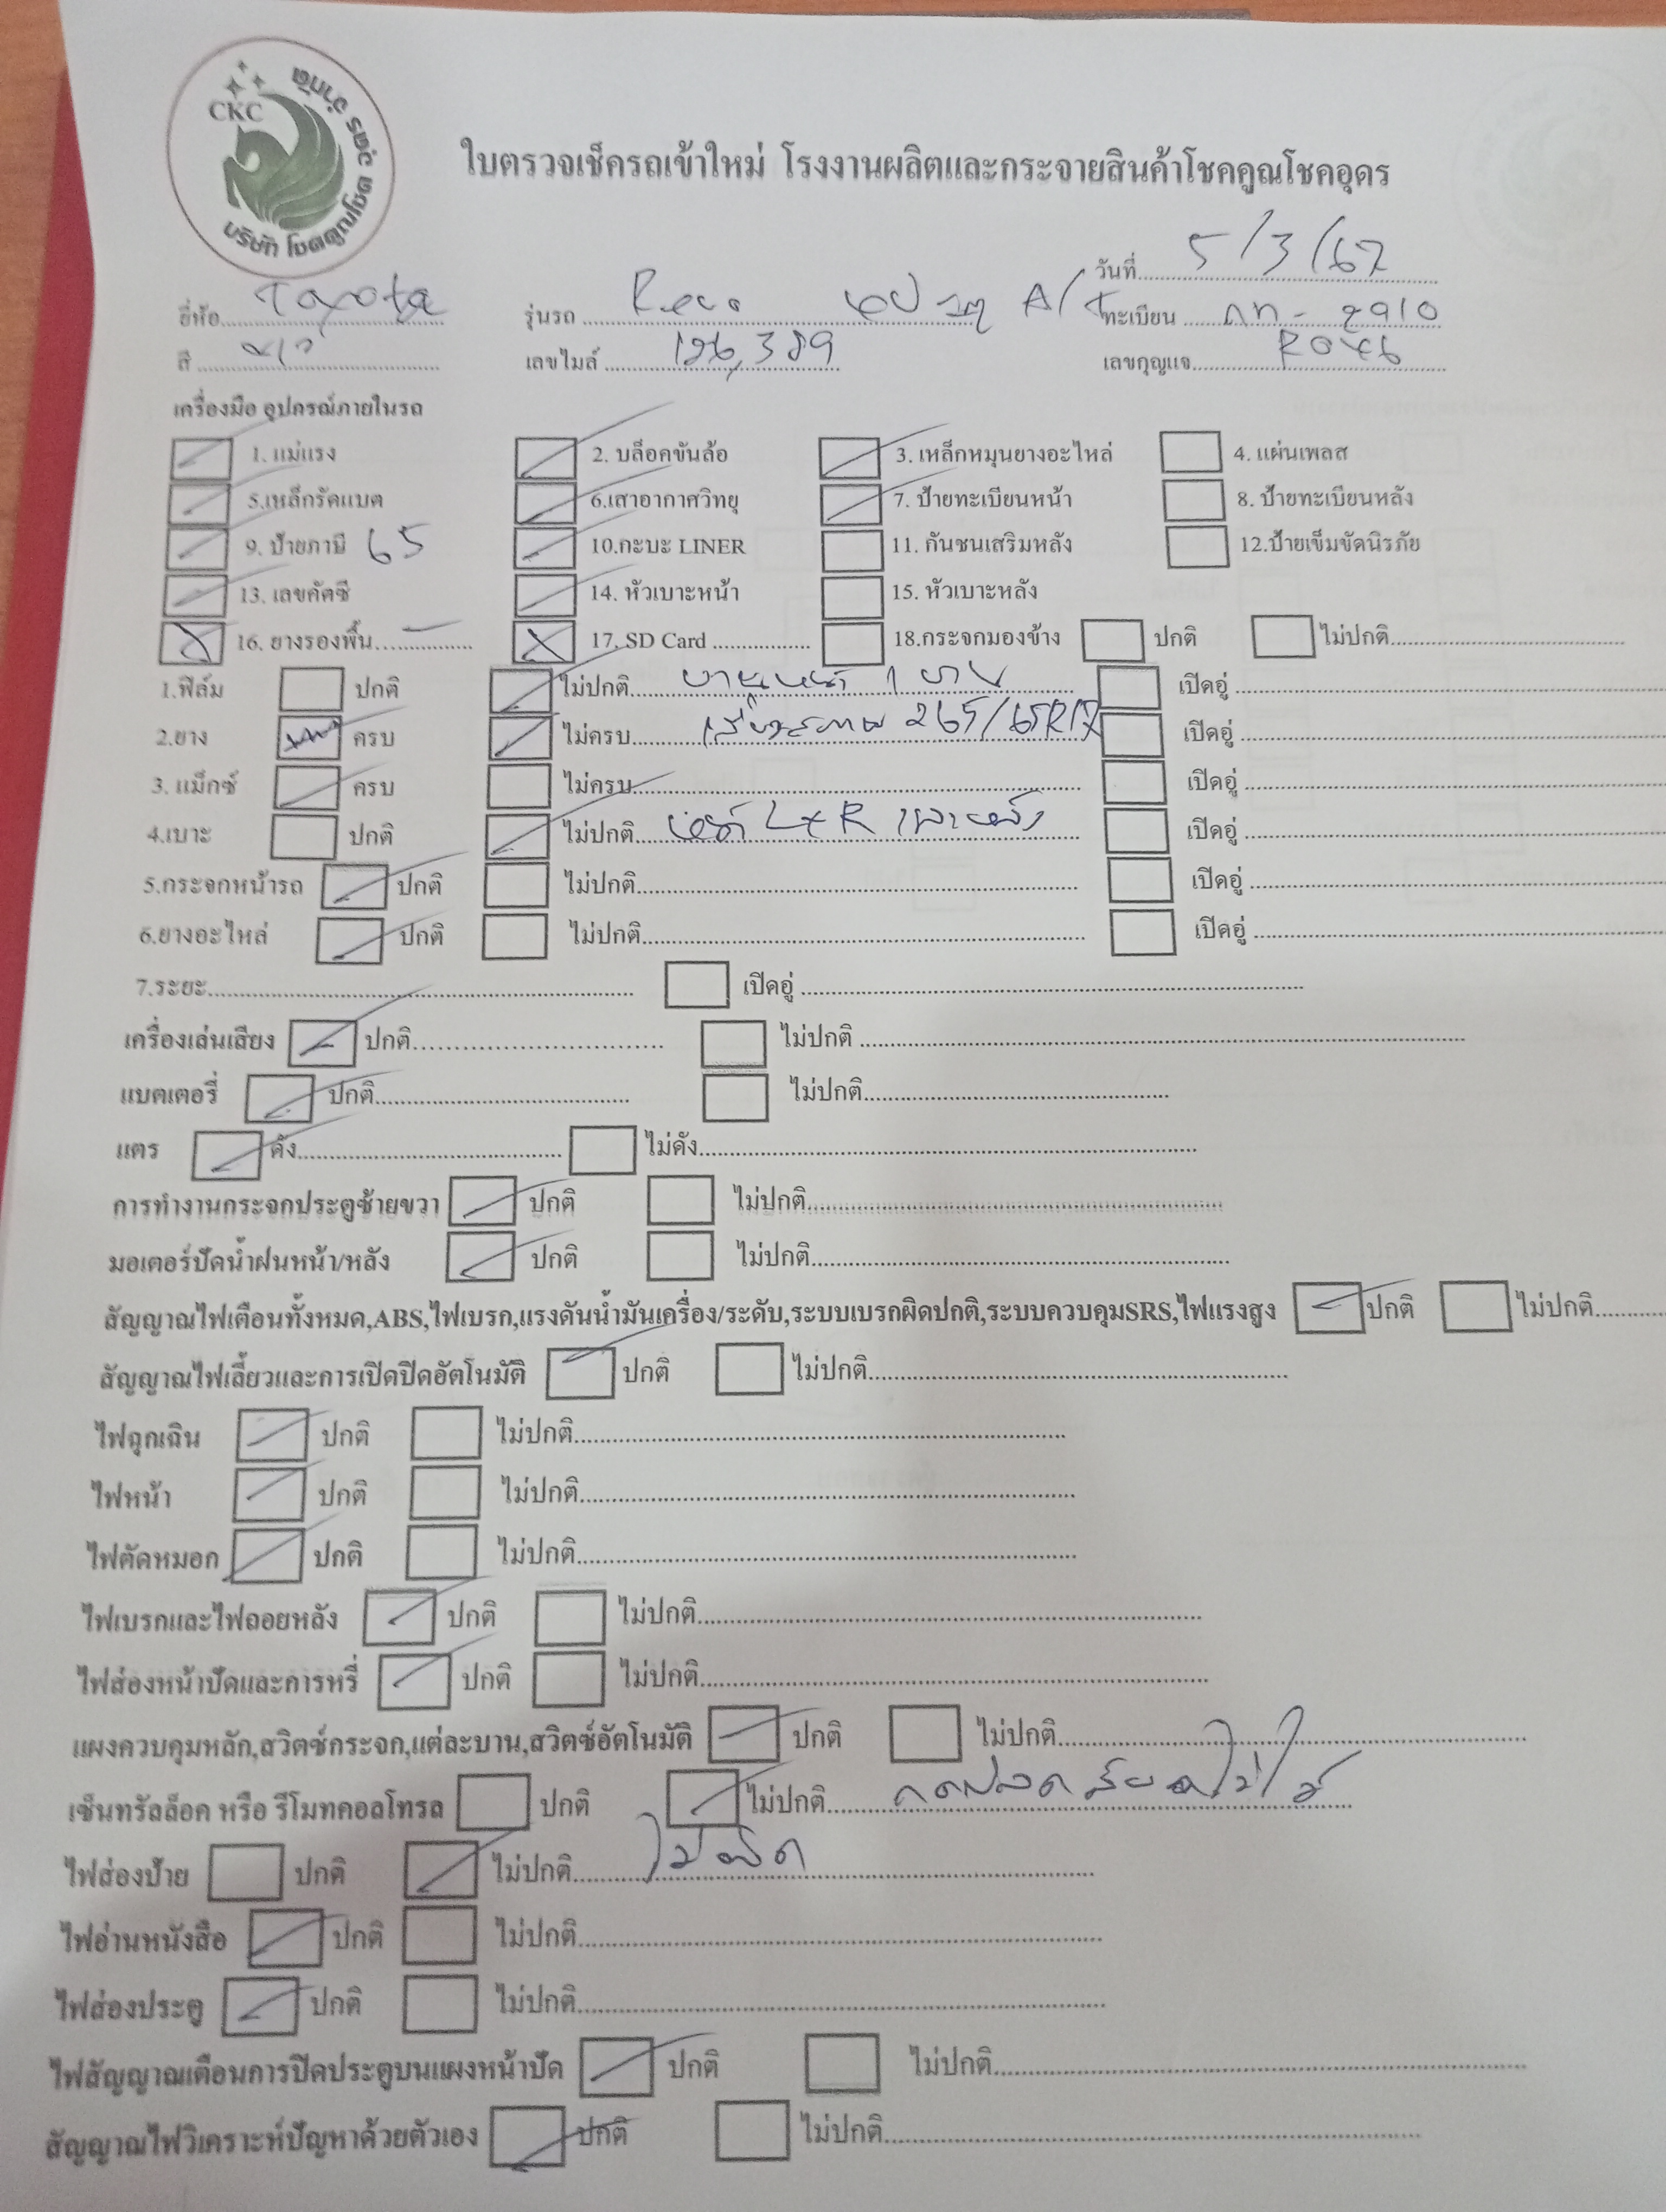 CKC
บริษัท โชคคูณโชค อุดร จำกัด
ใบตรวจเช็ครถเข้าใหม่ โรงงานผลิตและกระจายสินค้าโชคคูณโชคอุดร
วันที่ 5/3/67
ยี่ห้อ Toyota รุ่นรถ Revo A/T ทะเบียน 2910
สี เลขไมล์ 126,389 เลขกุญแจ R046
เครื่องมือ อุปกรณ์ภายในรถ
1. แม่แรง 2. บล็อคขันล้อ 3. เหล็กหมุนยางอะไหล่ 4. แผ่นเพลส
5.เหล็กรัดแบต 6.เสาอากาศวิทยุ 7. ป้ายทะเบียนหน้า 8. ป้ายทะเบียนหลัง
9. ป้ายภาษี 65 10.กะบะ LINER 11. กันชนเสริมหลัง 12.ป้ายเข็มขัดนิรภัย
13. เลขคัตซี 14. หัวเบาะหน้า 15. หัวเบาะหลัง
16. ยางรองพื้น 17. SD Card 18.กระจกมองข้าง ปกติ ไม่ปกติ
1.ฟิล์ม ปกติ ไม่ปกติ บานหน้า 1 บาน เปิดอู่
2.ยาง ครบ ไม่ครบ เสื่อมสภาพ 265/65R17 เปิดอู่
3. แม็กซ์ ครบ ไม่ครบ เปิดอู่
4.เบาะ ปกติ ไม่ปกติ หน้า L+R และหลัง เปิดอู่
5.กระจกหน้ารถ ปกติ ไม่ปกติ เปิดอู่
6.ยางอะไหล่ ปกติ ไม่ปกติ เปิดอู่
7.ระยะ เปิดอู่
เครื่องเล่นเสียง ปกติ ไม่ปกติ
แบตเตอรี่ ปกติ ไม่ปกติ
แตร ดัง ไม่ดัง
การทำงานกระจกประตูซ้ายขวา ปกติ ไม่ปกติ
มอเตอร์ปัดน้ำฝนหน้า/หลัง ปกติ ไม่ปกติ
สัญญาณไฟเตือนทั้งหมด,ABS,ไฟเบรก,แรงดันน้ำมันเครื่อง/ระดับ,ระบบเบรกผิดปกติ,ระบบควบคุมSRS,ไฟแรงสูง ปกติ ไม่ปกติ
สัญญาณไฟเลี้ยวและการเปิดปิดอัตโนมัติ ปกติ ไม่ปกติ
ไฟฉุกเฉิน ปกติ ไม่ปกติ
ไฟหน้า ปกติ ไม่ปกติ
ไฟตัดหมอก ปกติ ไม่ปกติ
ไฟเบรกและไฟถอยหลัง ปกติ ไม่ปกติ
ไฟส่องหน้าปัดและการหรี่ ปกติ ไม่ปกติ
แผงควบคุมหลัก,สวิตซ์กระจก,แต่ละบาน,สวิตซ์อัตโนมัติ ปกติ ไม่ปกติ
เซ็นทรัลล็อค หรือ รีโมทคอลโทรล ปกติ ไม่ปกติ
ไฟส่องป้าย ปกติ ไม่ปกติ ไม่ติด
ไฟอ่านหนังสือ ปกติ ไม่ปกติ
ไฟส่องประตู ปกติ ไม่ปกติ
ไฟสัญญาณเตือนการปิดประตูบนแผงหน้าปัด ปกติ ไม่ปกติ
สัญญาณไฟวิเคราะห์ปัญหาด้วยตัวเอง ปกติ ไม่ปกติ